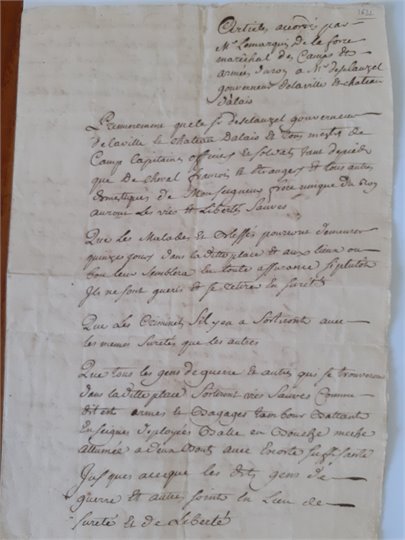 1632
Articles accordé par
Mr Lemarquis de la force
marechal des Camps des
armées duroy a Mr desplauzel
gouverneur delaville & chateau
dalais
Premierement que le sr desplauzel gouverneur
de laville le chateau Dalais & tous mestres de
Camp Capitaines officiers & soldats tant depied
que De cheval francois & etrangers & tous autres
domestiques de Monseigneur frere unique du roy
auront Les vies & Libertés Sauves
Que Les Malades & Blessés pourront demeurer
quinze jours dans la ditte place & aux lieux ou
bon leur Semblera en toute assurance si plutôt
Ils ne sont gueris & se retirer en sureté
Que Les Criminels Sil y en a Sortiront avec
les memes Suretés que les autres
Que tous les gens de guerre & autres qui se trouveron
dans la ditte place Sortiront vies Sauves Comme
dit est armes & Bagages tambour Battant
Enseignes Deployées Balle en Bouche meche
allumée a Deux Bouts avec Escorte Suffisante
Jusques acceque les dits gens de
guerre et autres soint en Lieu de
sureté & de Liberté